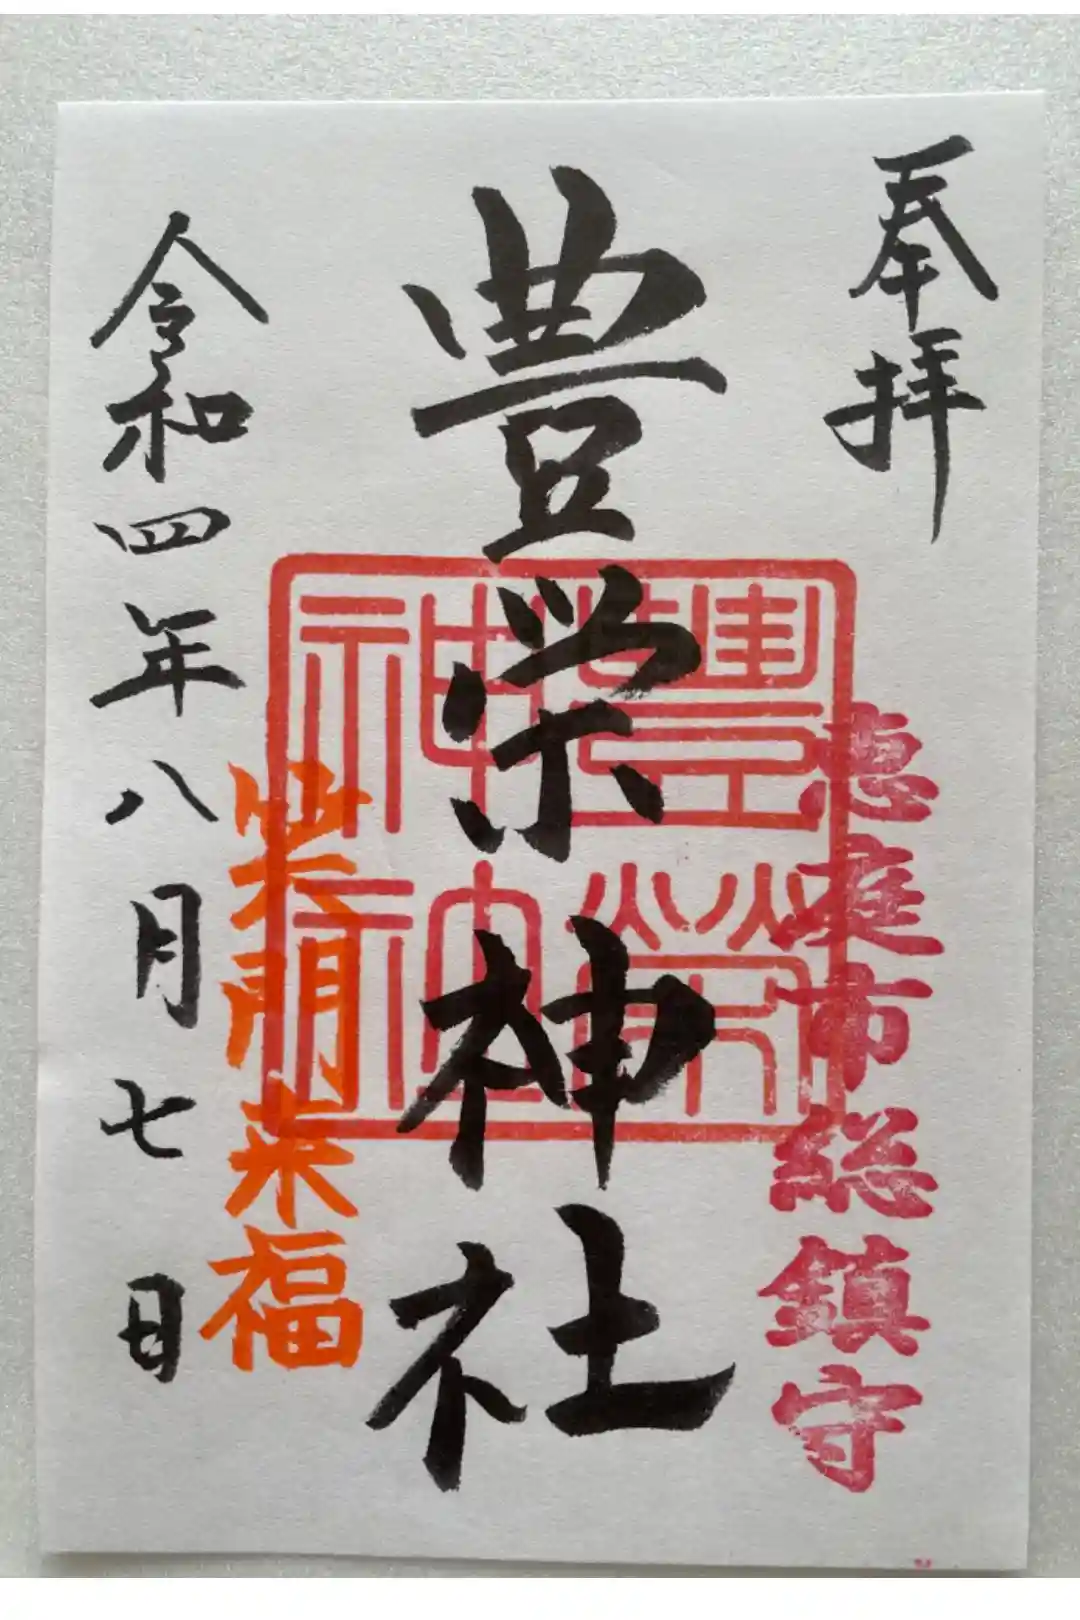 奉拝
恵庭市総鎮守
豊栄神社
豊栄
神社
笑門来福
令和四年八月七日